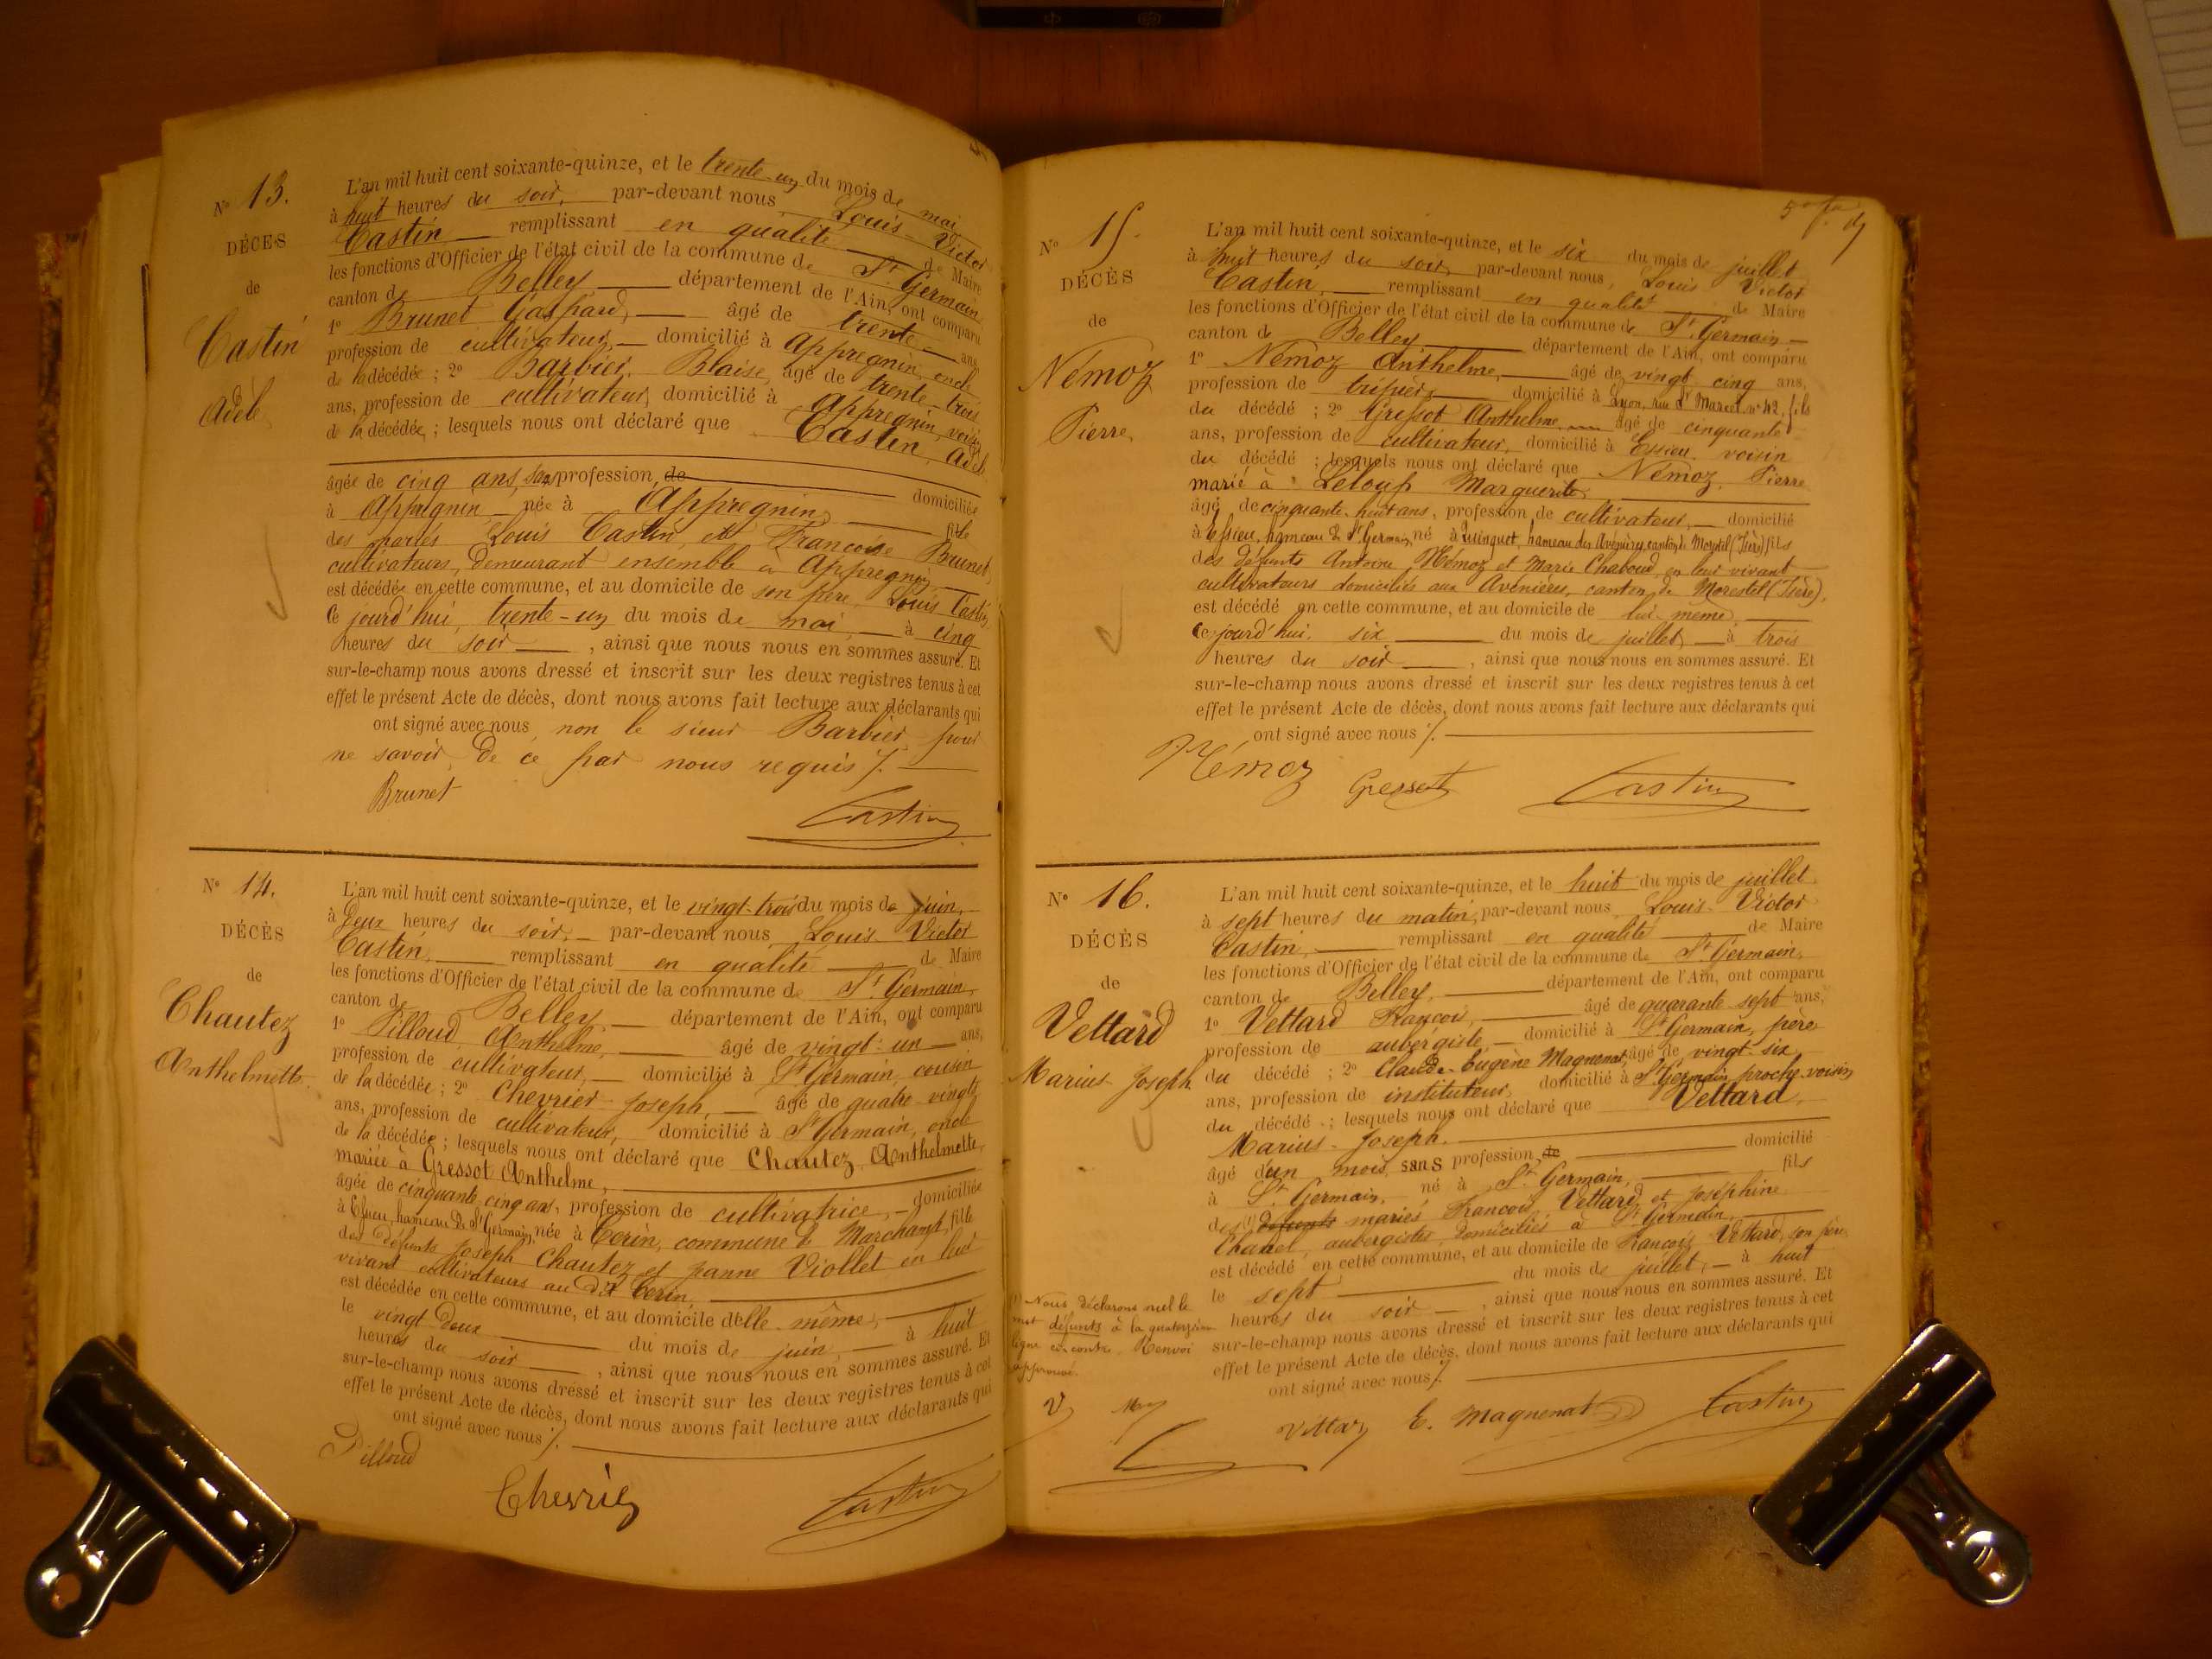 N° 13.
DÉCÈS
de
Castin
Adèle
L'an mil huit cent soixante-quinze, et le trente-un du mois de mai
à huit heures du soir, par-devant nous Louis-Victor
Castin remplissant en qualité de Maire
les fonctions d'Officier de l'état civil de la commune de St Germain
canton de Belley département de l'Ain, ont comparu
1° Brunet Gaspard, âgé de trente ans,
profession de cultivateur, domicilié à Appregnin, oncle
de la décédée ; 2° Barbier Blaise, âgé de trente-trois
ans, profession de cultivateur, domicilié à Appregnin, voisin
de la décédée, ; lesquels nous ont déclaré que Castin, Adèle
âgée de cinq ans, sans profession, de domiciliée
à Appregnin née à Appregnin, fille
des mariés Louis Castin, et Françoise Brunet,
cultivateurs, demeurant ensemble à Appregnin
est décédée en cette commune, et au domicile de son père Louis Castin
Ce jourd'hui, trente-un du mois de mai, à cinq
heures du soir , ainsi que nous nous en sommes assuré. Et
sur-le-champ nous avons dressé et inscrit sur les deux registres tenus à cet
effet le présent Acte de décès, dont nous avons fait lecture aux déclarants qui
ont signé avec nous, non le sieur Barbier pour
ne savoir, de ce par nous requis ./.
Brunet
Castin
N° 14.
DÉCÈS
de
Chautez
Anthelmette
L'an mil huit cent soixante-quinze, et le vingt-trois du mois de juin,
à deux heures du soir, par-devant nous Louis Victor
Castin, remplissant en qualité de Maire
les fonctions d'Officier de l'état civil de la commune de St Germain,
canton de Belley, département de l'Ain, ont comparu
1° Pilloud, Anthelme, âgé de vingt-un ans,
profession de cultivateur, domicilié à St Germain, cousin
de la décédée ; 2° Chevrier Joseph, âgé de quatre-vingts
ans, profession de cultivateur, domicilié à St Germain, oncle
de la décédée ; lesquels nous ont déclaré que Chautez Anthelmette,
mariée à Gressot Anthelme,
âgée de cinquante-cinq ans, profession de cultivatrice, domiciliée
à Essieu, hameau de St Germain, née à Cerin, commune de Marchamp, fille
des défunts Joseph Chautez et Jeanne Viollet en leur
vivant cultivateurs au dit Cerin,
est décédée en cette commune, et au domicile d'elle-même,
le vingt-deux du mois de juin, à huit
heures du soir , ainsi que nous nous en sommes assuré. Et
sur-le-champ nous avons dressé et inscrit sur les deux registres tenus à cet
effet le présent Acte de décès, dont nous avons fait lecture aux déclarants qui
ont signé avec nous ./.
Pilloud
Chevrier
Castin
N° 15.
DÉCÈS
de
Némoz
Pierre
L'an mil huit cent soixante-quinze, et le six du mois de juillet
à huit heures du soir, par-devant nous, Louis Victor
Castin, remplissant en qualité de Maire
les fonctions d'Officier de l'état civil de la commune de St Germain
canton de Belley, département de l'Ain, ont comparu
1° Némoz Anthelme, âgé de vingt-cinq ans,
profession de tripier, domicilié à Lyon, rue St Marcel n° 42, fils
du décédé ; 2° Gressot Anthelme, âgé de cinquante
ans, profession de cultivateur, domicilié à Essieu, voisin
du décédé ; lesquels nous ont déclaré que Némoz, Pierre
marié à Leloup Marguerite,
âgé de cinquante-huit ans, profession de cultivateur, domicilié
à Essieu, hameau de St Germain, né à Quinquet, hameau des Avenières, canton de Morestel (Isère) fils
des défunts Antoine Némoz et Marie Chaboud, en leur vivant
cultivateurs domiciliés aux Avenières, canton de Morestel (Isère),
est décédé en cette commune, et au domicile de lui-même,
Ce jourd'hui, six du mois de juillet, à trois
heures du soir , ainsi que nous nous en sommes assuré. Et
sur-le-champ nous avons dressé et inscrit sur les deux registres tenus à cet
effet le présent Acte de décès, dont nous avons fait lecture aux déclarants qui
ont signé avec nous ./.
Némoz Gressot Castin
N° 16.
DÉCÈS
de
Vettard
Marius-Joseph
L'an mil huit cent soixante-quinze, et le huit du mois de juillet
à sept heures du matin, par-devant nous, Louis-Victor
Castin, remplissant en qualité de Maire
les fonctions d'Officier de l'état civil de la commune de St Germain,
canton de Belley, département de l'Ain, ont comparu
1° Vettard François, âgé de quarante-sept ans,
profession de aubergiste, domicilié à St Germain, père
du décédé ; 2° Claude-Eugène Magnenat, âgé de vingt-six
ans, profession de instituteur, domicilié à St Germain, proche voisin
du décédé ; lesquels nous ont déclaré que Vettard,
Marius-Joseph.
âgé d'un mois, sans profession, de domicilié
à St Germain, né à St Germain, fils
des (1) défunts mariés François Vettard et Joséphine
Chanel, aubergistes, domiciliés à St Germain,
est décédé en cette commune, et au domicile de François Vettard, son père
le sept du mois de juillet, à huit
heures du soir , ainsi que nous nous en sommes assuré. Et
sur-le-champ nous avons dressé et inscrit sur les deux registres tenus à cet
effet le présent Acte de décès, dont nous avons fait lecture aux déclarants qui
ont signé avec nous ./.
(1) Nous déclarons nul le
mot défunts à la quatorzième
ligne ci-contre. Renvoi
approuvé.
Vettard E. Magnenat Castin